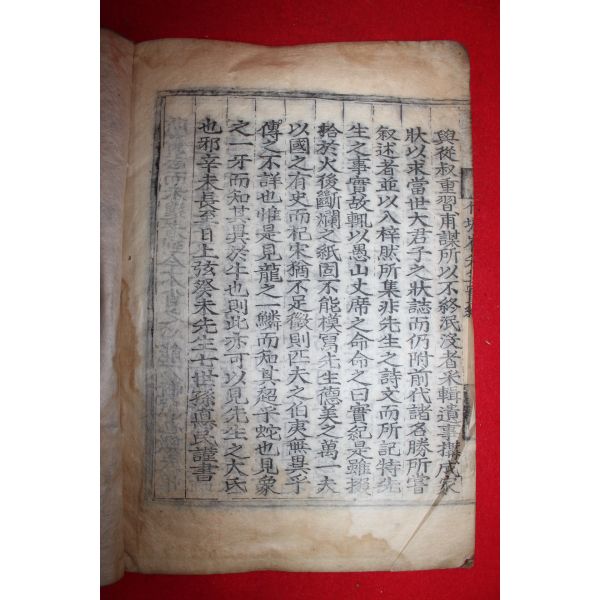 與從叔重習甫謀所以不終泯沒者采輯遺事搆成家
狀以求當世大君子之狀誌而仍附前代諸名勝所嘗
叙述者並以入梓然所集非先生之詩文而所記特先
生之事實故輒以愚山丈席之命命之曰實紀是雖掇
拾於火後斷爛之紙固不能模寫先生德美之萬一夫
以國之有史而杞宋猶不足徵則匹夫之伯夷無異乎
傳之不詳也惟是見龍之一鱗而知其超乎蛇也見象
之一牙而知其異於牛也則此亦可以見先生之大氐
也邪辛未長至日上弦癸未先生七世孫眞民謹書